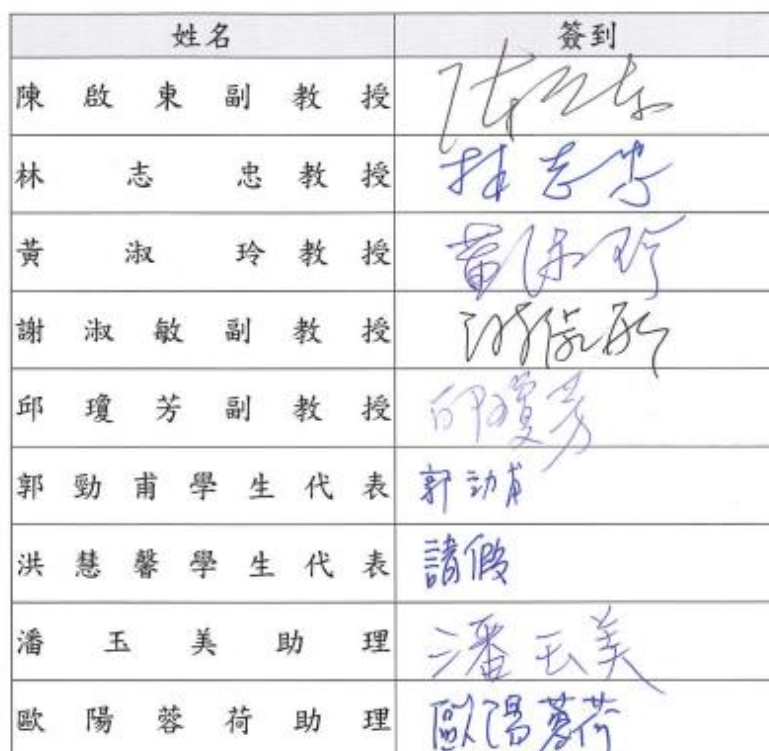 姓名 簽到
陳啟東副教授 陳啟東
林志忠教授 林志忠
黃淑玲教授 黃淑玲
謝淑敏副教授
邱瓊芳副教授 邱瓊芳
郭勁甫學生代表 郭勁甫
洪慧馨學生代表 請假
潘玉美助理 潘玉美
歐陽蓉荷助理 歐陽蓉荷